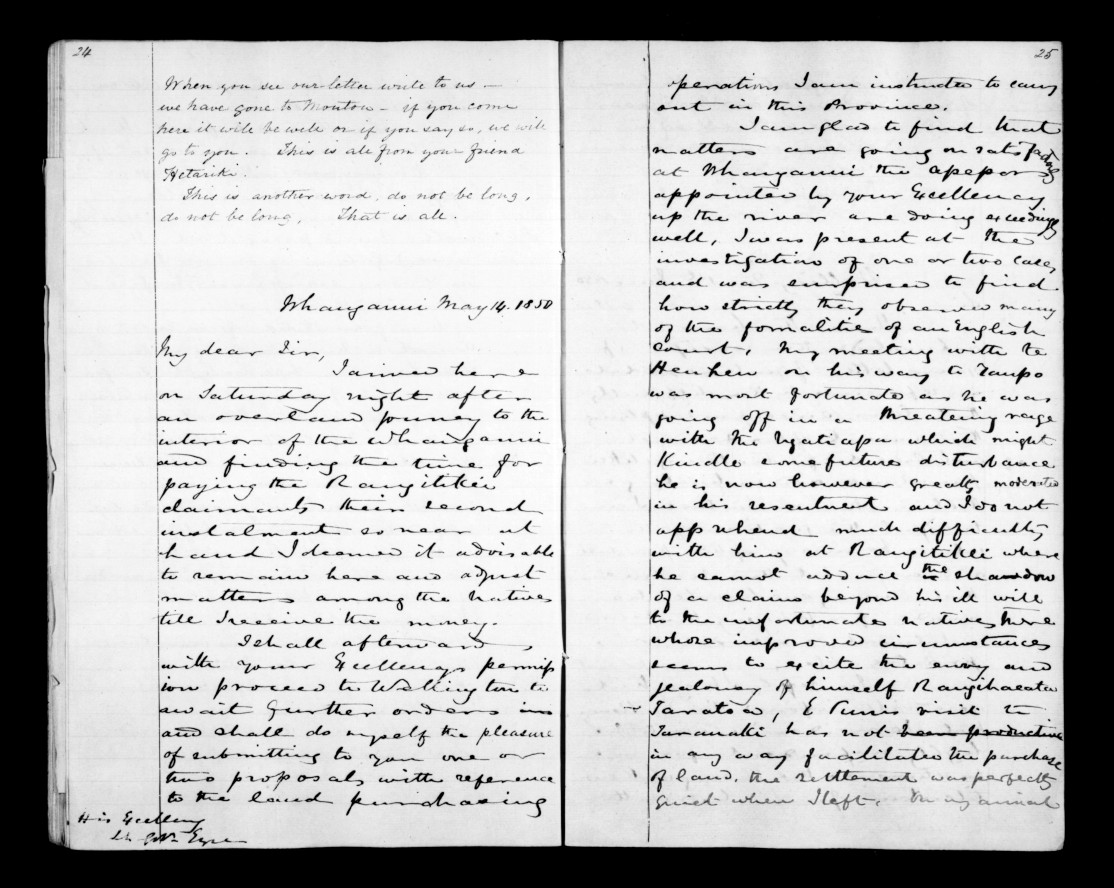 24
When you see our letter write to us —
we have gone to Moutoa — if you come
here it will be well or if you say so, we will
go to you. This is all from your friend
Hetariki.
This is another word, do not be long,
do not be long, That is all.
Whanganui May 14. 1850
My dear Sir,
I arrived here
on Saturday night after
an overland journey to the
interior of the Whanganui
and finding the time for
paying the Rangitikei
claimants their second
instalment so near at
hand I deemed it advisable
to remain here and adjust
matters among the natives
till I receive the money.
I shall afterwards
with your Excellency's permiss
ion proceed to Wellington to
await further orders
and shall do myself the pleasure
of submitting to you one or
two proposals with reference
to the land purchasing
His Excellency
Lt. Govr. Eyre
25
operations I am instructed to carry
out in this Province.
I am glad to find that
matters are going on satisfactorily
at Whanganui the assessors
appointed by your Excellency
up the river are doing exceedingly
well, I was present at the
investigation of one or two cases
and was surprised to find
how strictly they observed many
of the formalities of an English
court. My meeting with Te
Heuheu on his way to Taupo
was most fortunate as he was
going off in a threatening rage
with the Ngatiapa which might
kindle some future disturbance
he is now however greatly moderated
in his resentment and I do not
apprehend much difficulty
with him at Rangitikei where
he cannot adduce the shadow
of a claim beyond his ill will
to the unfortunate natives there
whose improved circumstances
seems to excite the envy and
jealousy of himself Rangihaeata
E Puni's visit to
Taranaki has not been productive
in any way facilitated the purchase
of land. the settlement was perfectly
quiet when I left. On my arrival